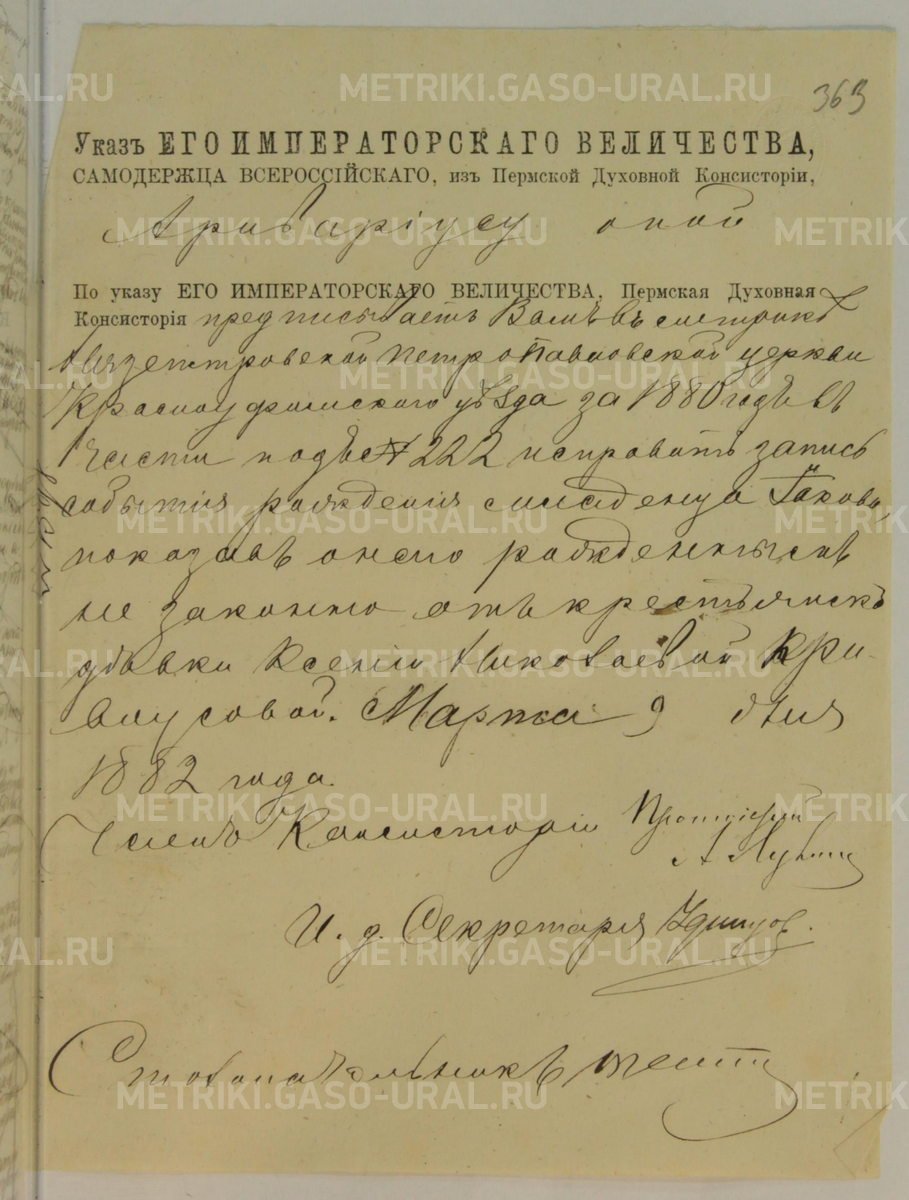 363
Указъ ЕГО ИМПЕРАТОРСКАГО ВЕЛИЧЕСТВА,
САМОДЕРЖЦА ВСЕРОССІЙСКАГО, изъ Пермской Духовной Консисторіи,
Архиваріусу оной
По указу ЕГО ИМПЕРАТОРСКАГО ВЕЛИЧЕСТВА, Пермская Духовная
Консисторія предписываетъ Вамъ въ метрикѣ
Нязепетровской Петропавловской церкви
Красноуфимскаго уѣзда за 1880 годъ въ
1 части подъ № 222 исправить запись
событія рожденія младенца Іакова,
показавъ онаго рожденнымъ
не законно отъ крестьянск
дѣвки Ксеніи Николаевой Кри-
оусовой. Марта 9 дня
1882 года.
Членъ Консисторіи Протоіерей
А Лу
И. д. Секретаря Удинцов.
Столоначальникъ
METRIKI.GASO-URAL.RU